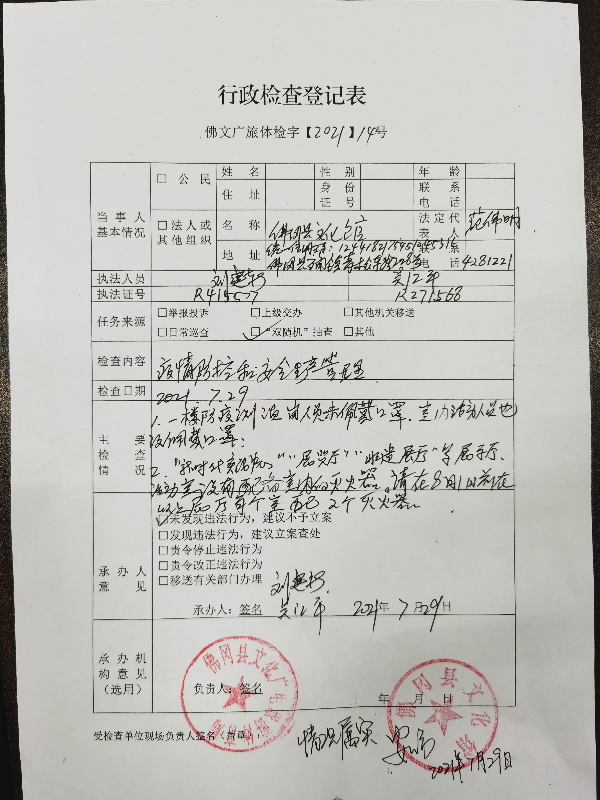 行政检查登记表
佛文广旅体检字【2021】14号
当事人基本情况
□公民
姓名 性别 年龄
住址 身份证号 联系电话
□法人或其他组织
名称 佛冈县文化馆 法定代表人 范伟明
地址 联系电话 4281221
执法人员 刘 吴江平
执法证号 R415577 R271568
任务来源 □举报投诉 □上级交办 □其他机关移送
□日常巡查 “双随机”抽查 □其他
检查内容 疫情防控和安全生产
检查日期 2021.7.29
主要检查情况
1.一楼防疫测温岗人员未佩戴口罩,室内活动人员也
没佩戴口罩;
2. 展厅”等展示厅、
活动室没有配备室内的灭火器。请在8月1日前在
以上展厅每个室配2个灭火器。
承办人意见
□未发现违法行为,建议不予立案
□发现违法行为,建议立案查处
□责令停止违法行为
□责令改正违法行为
□移送有关部门办理
承办人:签名 刘 吴江平 2021年7月29日
承办机构意见(选用)
负责人:签名
年 月 日
受检查单位现场负责人签名(盖章):
情况属实
2021年7月29日
佛冈县文化广电旅游体育局
佛冈县文化馆